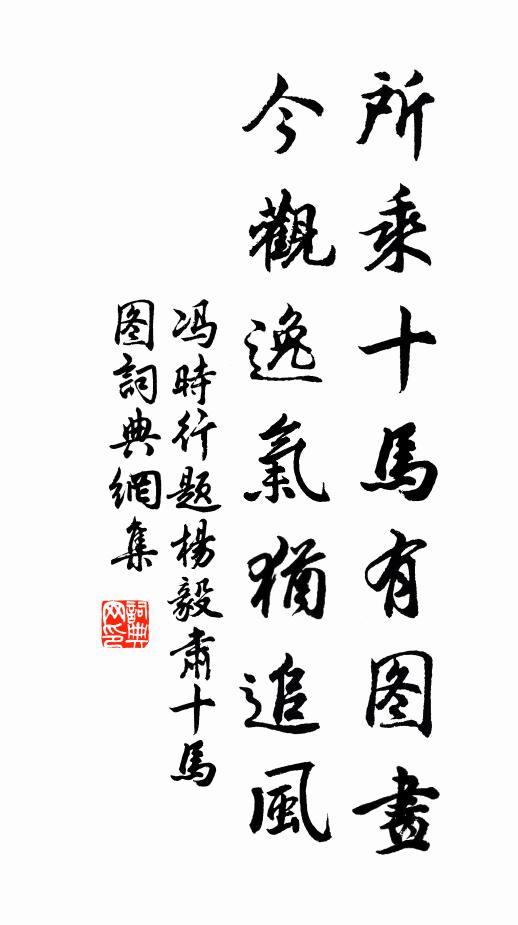 所乘十馬有图畫
今觀逸氣猶追風
冯時行题楊毅肅十馬
图詞典網集
詞典网印